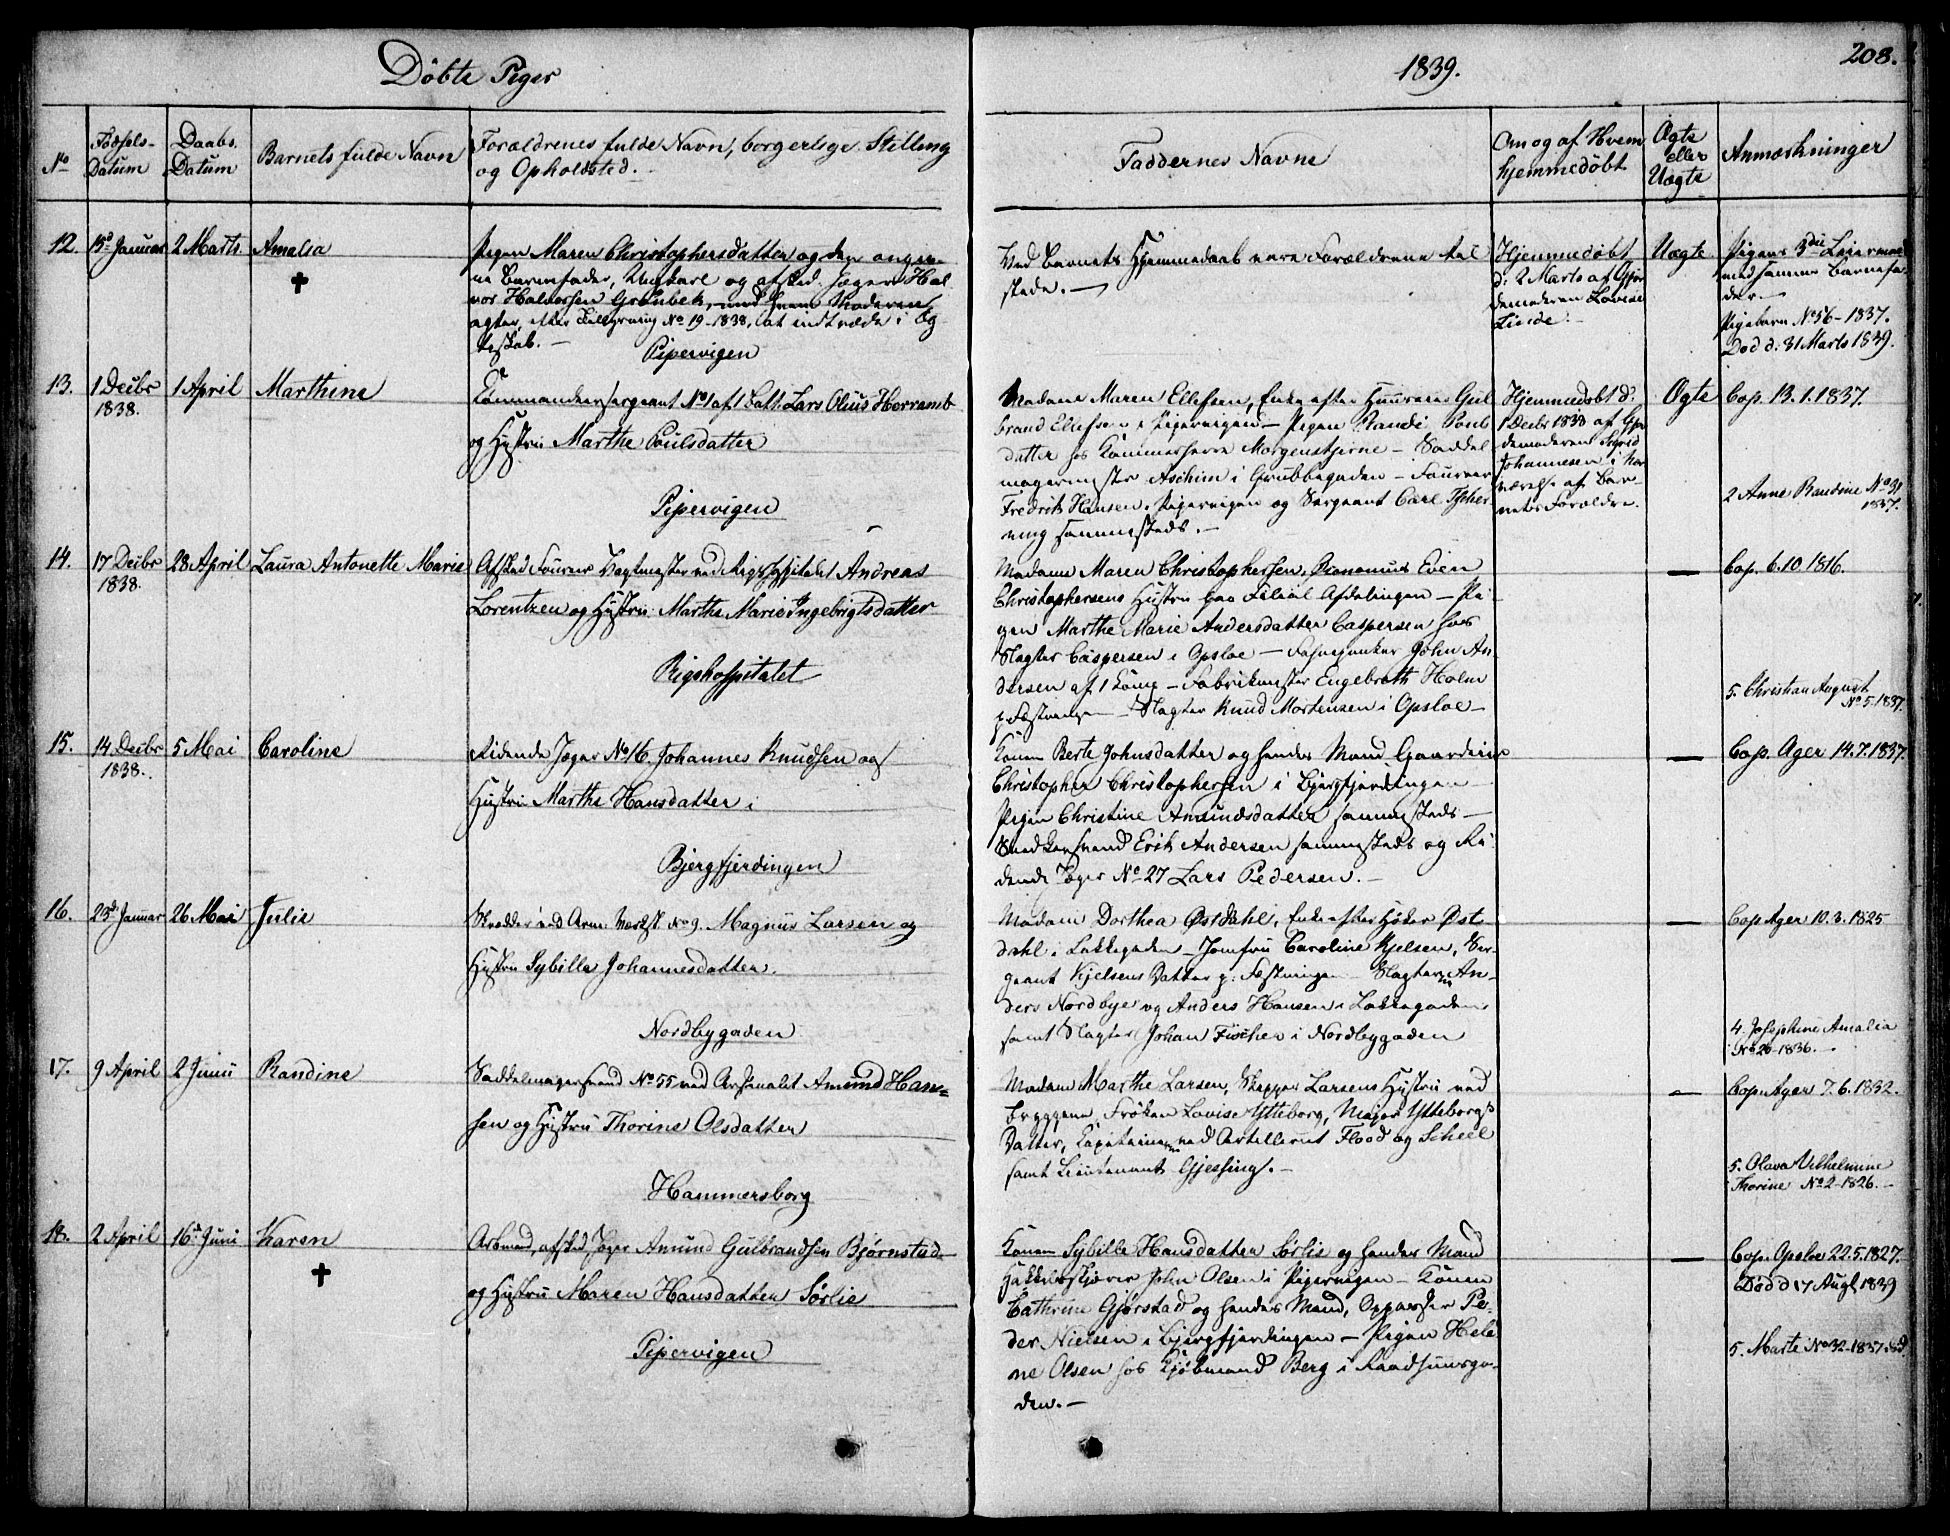 Døbte Piger
1839.
208.
No
Fødsels-
Datum
Daabs
Datum
Barnets fulde Navn
Forældrenes fulde Navn, borgerlige Stilling
og Opholdsted.
Faddernes Navne
Om og af Hvem
hjemmedøbt
Ægte
eller
Uægte
Anmærkninger
12. 15d Januar 2 Marts. Amalia
Pigen Maren Christophersdatter og den angiv-
ne Barnefader, Ungkarl og afsked. Jæger Hal
vor Halvorsen Grønbek, med hvem Moderen
agter, efter Tillysning No 19-1838, at indtræde i Æg
teskab. -
Pipervigen
Ved Barnets Hjemmedaab vare Forældrene til
stede. -
Hjemmedøbt
d: 2 Marts af Gjor
demoderen Lovise
Linde
Uægte
Pigens 3die Leiermaal
med samme Barnefa
der. -
Pigebarn No 56-1837.
Død d: 31 Marts 1839.
13. 1 Decbr
1838.
1 April Marthine
Commandeersergeant No 1 af 1 Batt. Lars Olius Horramb
og Hustru Marthe Poulsdatter
Pipervigen
Madame Maren Ellefsen, Enke efter Fourer Gul
brand Ellefsen i Pipervigen - Pigen Randi Pouls
datter hos Kammerherre Morgenstjerne - Saddel
magermester Aschim i Grubbegaden - Fourer
Fredrik Hansen, Pipervigen og Sergeant Carl Tscher
ning sammesteds. -
Hjemmedøbt d:
1 Decbr 1838 af Gjor
demoderen Sigrid
Johannesen i Nær
værelse af Bar-
nets Forældre.
Ægte
Cop. 13.1.1837.
2 Anne Randine No 31
1837.
14. 17 Decbr
1838.
28 April Laura Antonette Marie
Afsked Fourer, Vagtmester ved Rigshospitalet Andreas
Lorentzen og Hustru Marthe Marie Ingebrigtsdatter
Rigshospitalet
Madame Maren Christophersen, Oeconomus Even
Christophersens Hustru paa Filial Afdelingen - Pi-
gen Marthe Marie Andersdatter Caspersen hos
Slagter Caspersen i Opsloe - Fahnejunker John An
dersen af 1 Komp - Fabrikmester Engebreth Holm
p. Fæstningen - Slagter Knud Mortensen i Opsloe -
—
Cop. 6.10 1816.
5. Christian August
No 5. 1837.
15. 14 Decbr
1838.
5 Mai Caroline
Ridende Jæger No 16. Johannes Knudsen og
Hustru Marthe Hansdatter i
Bjergfjerdingen
Konen Berte Johnsdatter og hendes Mand Gaardeier
Christopher Christophersen i Bjergfjerdingen
Pigen Christine Amundsdatter sammesteds -
Snedkersvend Erik Andersen sammesteds og Ri-
dende Jæger No 27 Lars Pedersen. -
—
Cop. Ager 14.7.1837.
16. 23d Januar 26 Mai Julie
Skrædder ved Arm. Værkst. No 9. Magnus Larsen og
Hustru Sybille Johannesdatter.
Nordbygaden
Madam Dorthea Østdahl, Enke efter Høker Øst
dahl i Lakkegaden - Jomfru Caroline Kjelsen, Ser
geant Kjelsens Datter p. Festningen - Slagterne An-
ders Nordbye og Anders Hansen i Lakkegaden
samt Slagter Johan Fischer i Nordbygaden
—
Cop Ager 10.3.1825
4. Josephine Amalia
No 26-1836. -
17. 9 April 2 Junii Randine
Saddelmagersvend No 55 ved Arsenalet Amund Han-
sen og Hustru Thorine Olsdatter
Hammersborg
Madam Marthe Larsen, Skipper Larsens Hustru ved
Bryggene, Frøken Lovise Ytteborg, Major Ytteborgs
Datter, Capitainerne ved Artilleriet Flood og Scheel
samt Lieutenant Gjessing. -
—
Cop. Ager 7.6.1832.
5. Olava Vilhelmine
Thorine No 2-1826. -
18. 2 April 16d Juni Karen
Arbmand, afsked Jæger Amund Gulbrandsen Bjørnstad
og Hustru Maren Hansdatter Sørlie
Pipervigen
Konen Sybille Hansdatter Sørlie og hendes Mand
Hakkelseskjærer John Olsen i Pipervigen - Konen
Cathrine Gjørstad og hendes Mand, Oppasser Pe-
der Nielsen i Bjergfjerdingen - Pigen Hele
ne Olsen hos Kjøbmand Berg i Raadhuusga-
den. -
—
Cop. Opsloe 22.5.1827.
Død d 17 Augt 1839
5. Marte No 32-1837